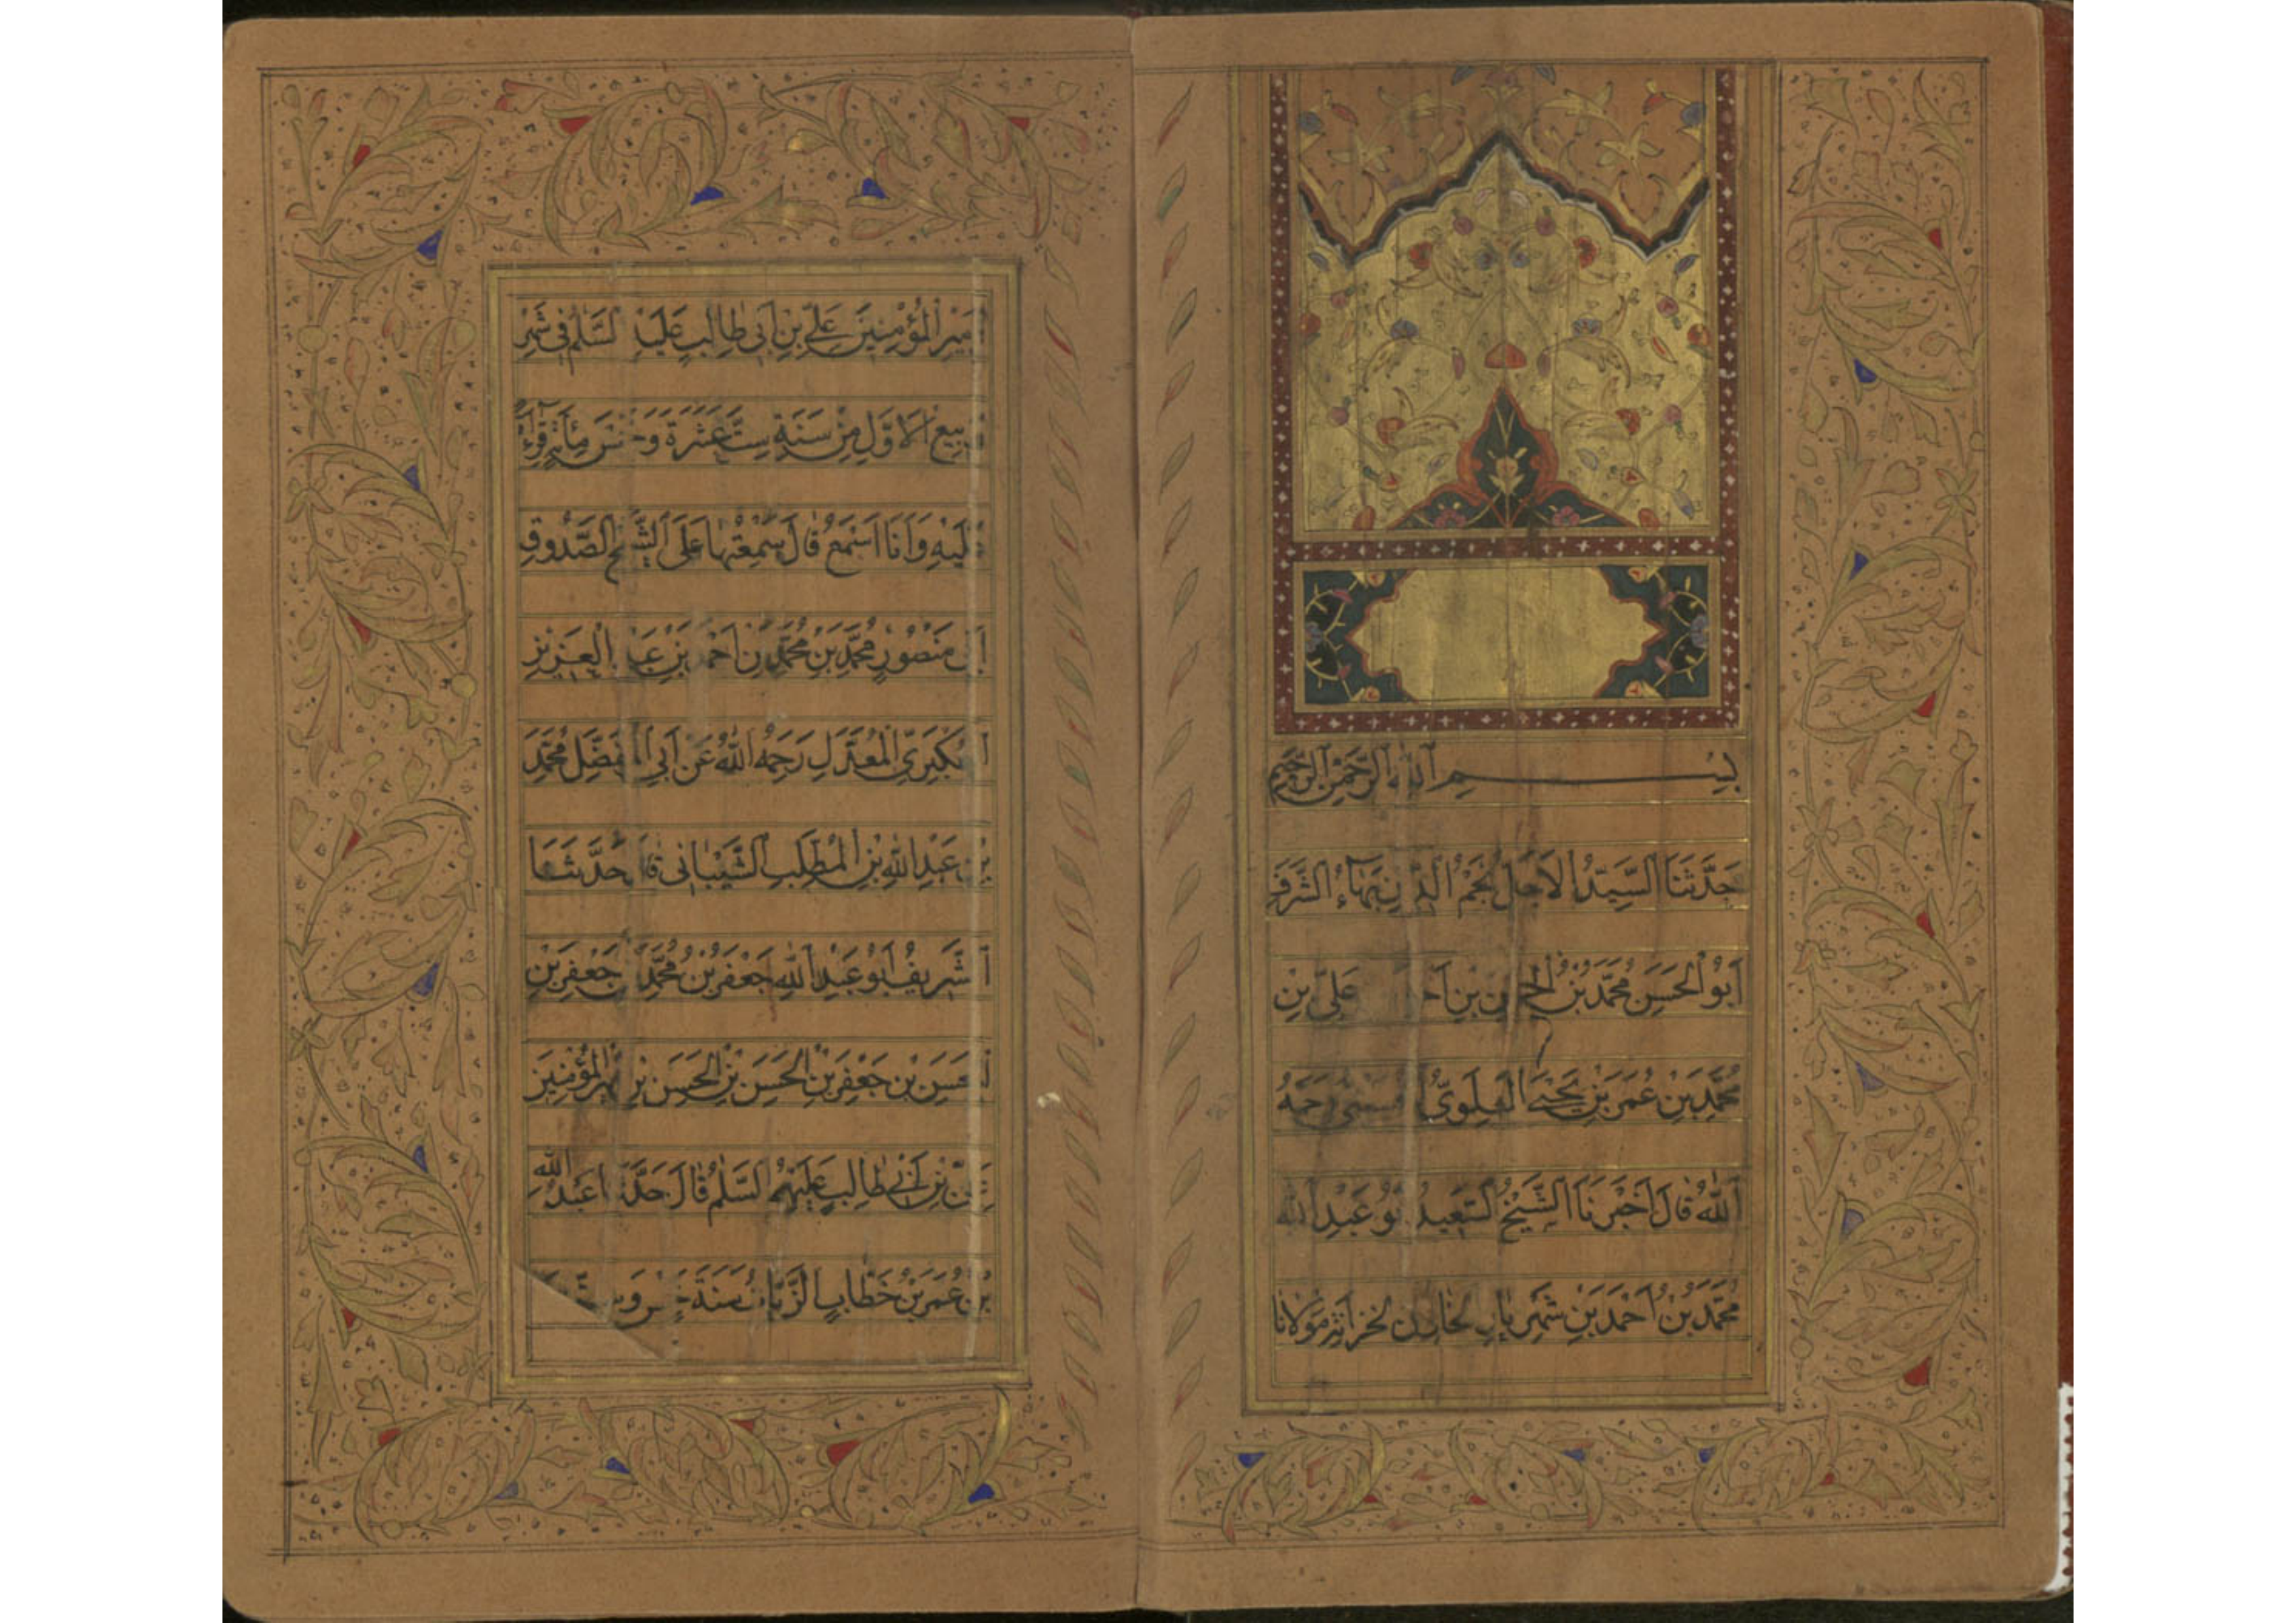 بِسْمِ اللهِ الرَّحْمٰنِ الرَّحِيمِ
حَدَّثَنَا السَّيِّدُ الْاَجَلُّ نَجْمُ الدِّينِ بَهَآءُ الشَّرَفِ
اَبُو الْحَسَنِ مُحَمَّدُ بْنُ الْحَسَنِ بْنِ اَحْمَدَ عَلِيِّ بْنِ
مُحَمَّدِ بْنِ عُمَرَ بْنِ يَحْيَى الْعَلَوِيُّ الْحُسَيْنِيُّ رَحِمَهُ
اللهُ قَالَ اَخْبَرَنَا الشَّيْخُ السَّعِيدُ اَبُو عَبْدِ اللهِ
مُحَمَّدُ بْنُ اَحْمَدَ بْنِ شَهْرِيَارَ الْخَازِنُ لِخَزَانَةِ مَوْلَانَا
اَمِيرِ الْمُؤْمِنِينَ عَلِيِّ بْنِ اَبِي طَالِبٍ عَلَيْهِ السَّلَمُ فِي شَهْرِ
رَبِيعِ الْاَوَّلِ مِنْ سَنَةِ سِتَّ عَشَرَةَ وَخَمْسَ مِأَةٍ قِرَآءَةً
عَلَيْهِ وَاَنَا اَسْمَعُ قَالَ سَمِعْتُهَا عَلَى الشَّيْخِ الصَّدُوقِ
اَبِي مَنْصُورٍ مُحَمَّدِ بْنِ مُحَمَّدِ بْنِ اَحْمَدَ بْنِ عَبْدِ الْعَزِيزِ
الْعُكْبَرِيِّ الْمُعَدَّلِ رَحِمَهُ اللهُ عَنْ اَبِي الْمُفَضَّلِ مُحَمَّدِ
بْنِ عَبْدِ اللهِ بْنِ الْمُطَّلِبِ الشَّيْبَانِي قَالَ حَدَّثَنَا
الشَّرِيفُ اَبُو عَبْدِ اللهِ جَعْفَرُ بْنُ مُحَمَّدِ بْنِ جَعْفَرِ بْنِ
الْحَسَنِ بْنِ جَعْفَرِ بْنِ الْحَسَنِ بْنِ الْحَسَنِ بْنِ اَمِيرِ الْمُؤْمِنِينَ
عَلِيِّ بْنِ اَبِي طَالِبٍ عَلَيْهِمُ السَّلَمُ قَالَ حَدَّثَنَا عَبْدُ اللهِ
بْنُ عُمَرَ بْنِ خَطَّابٍ الزَّيَّاتُ سَنَةَ خَمْسٍ وَسِتِّينَ